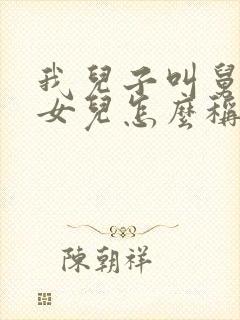 我兒子叫舅
女兒怎麼稱
陳朝祥